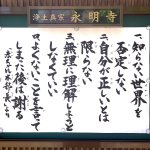 浄土真宗 永明寺
一、知らない世界を
否定しない
二、自分が正しいとは
限らない
三、無理に理解しようと
しなくていい
四、よくないことを言って
しまった後は謝る